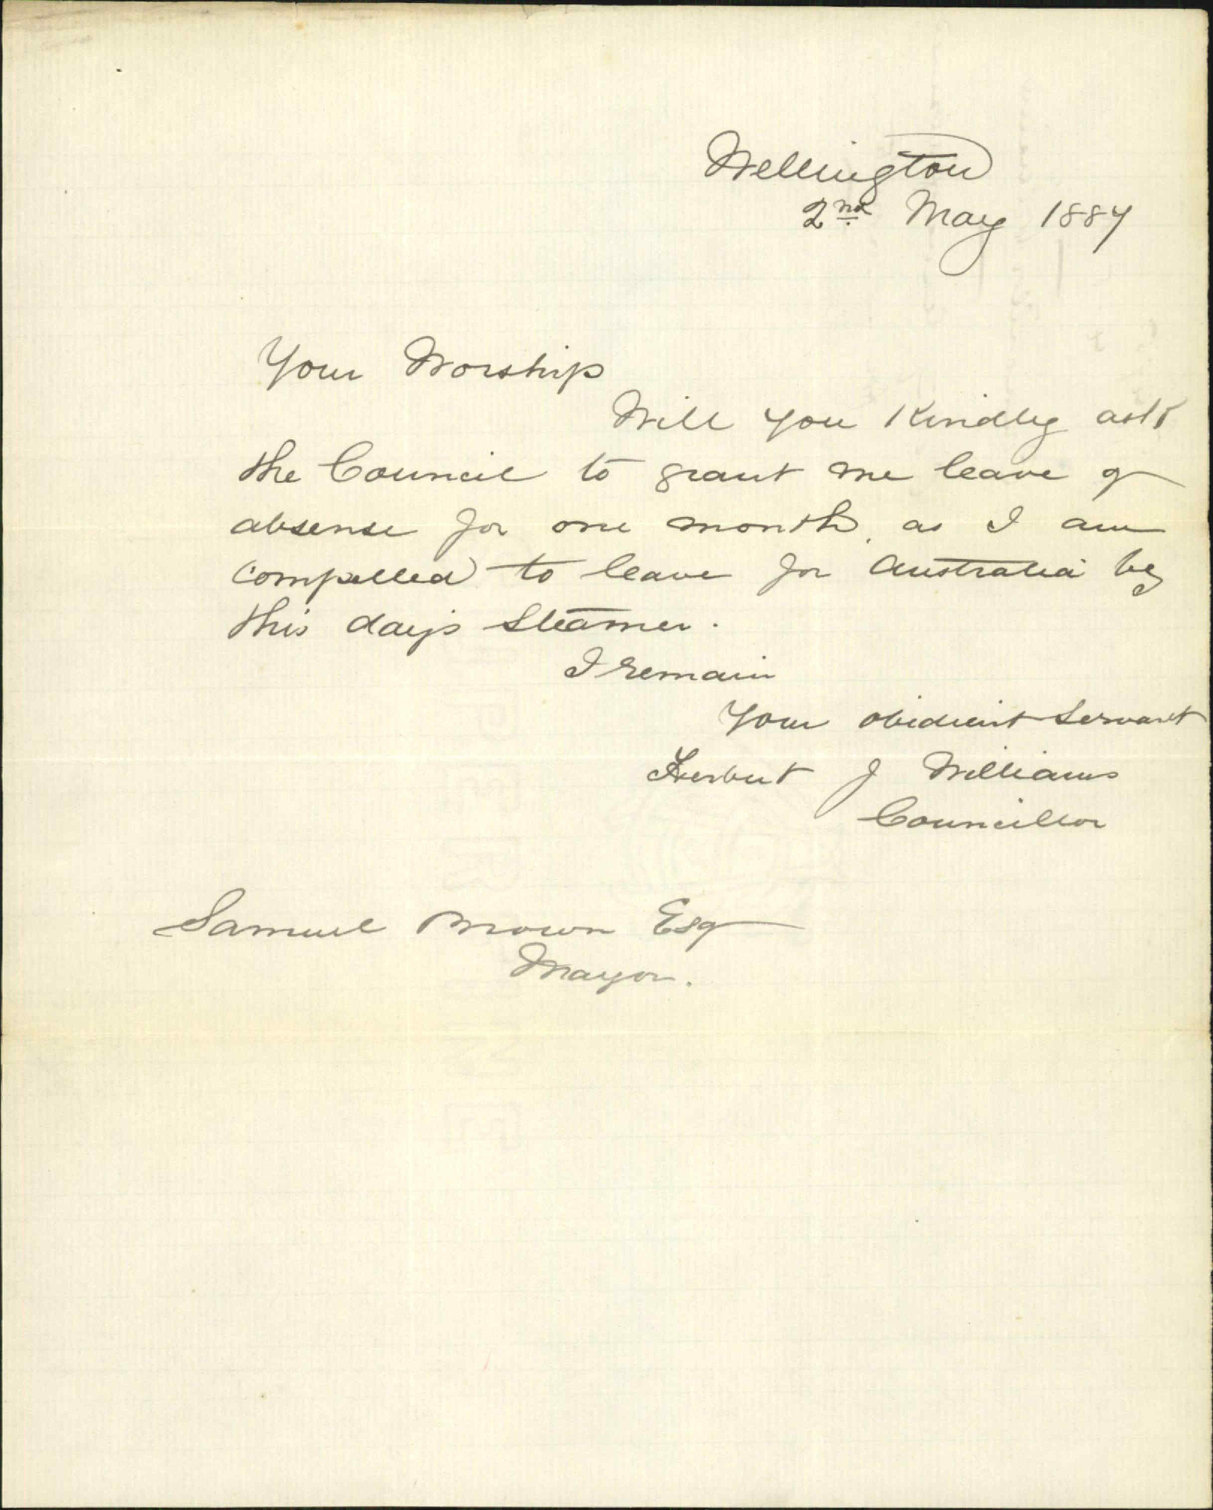 Wellington
2nd May 1887
Your Worship
Will you Kindly ask
the Council to grant me leave of
absense for one month, as I am
compelled to leave for Australia by
this day's Steamer.
I remain
Your obidient Servant
Herbert J Williams
Councillor
Samuel Brown Esq
Mayor.